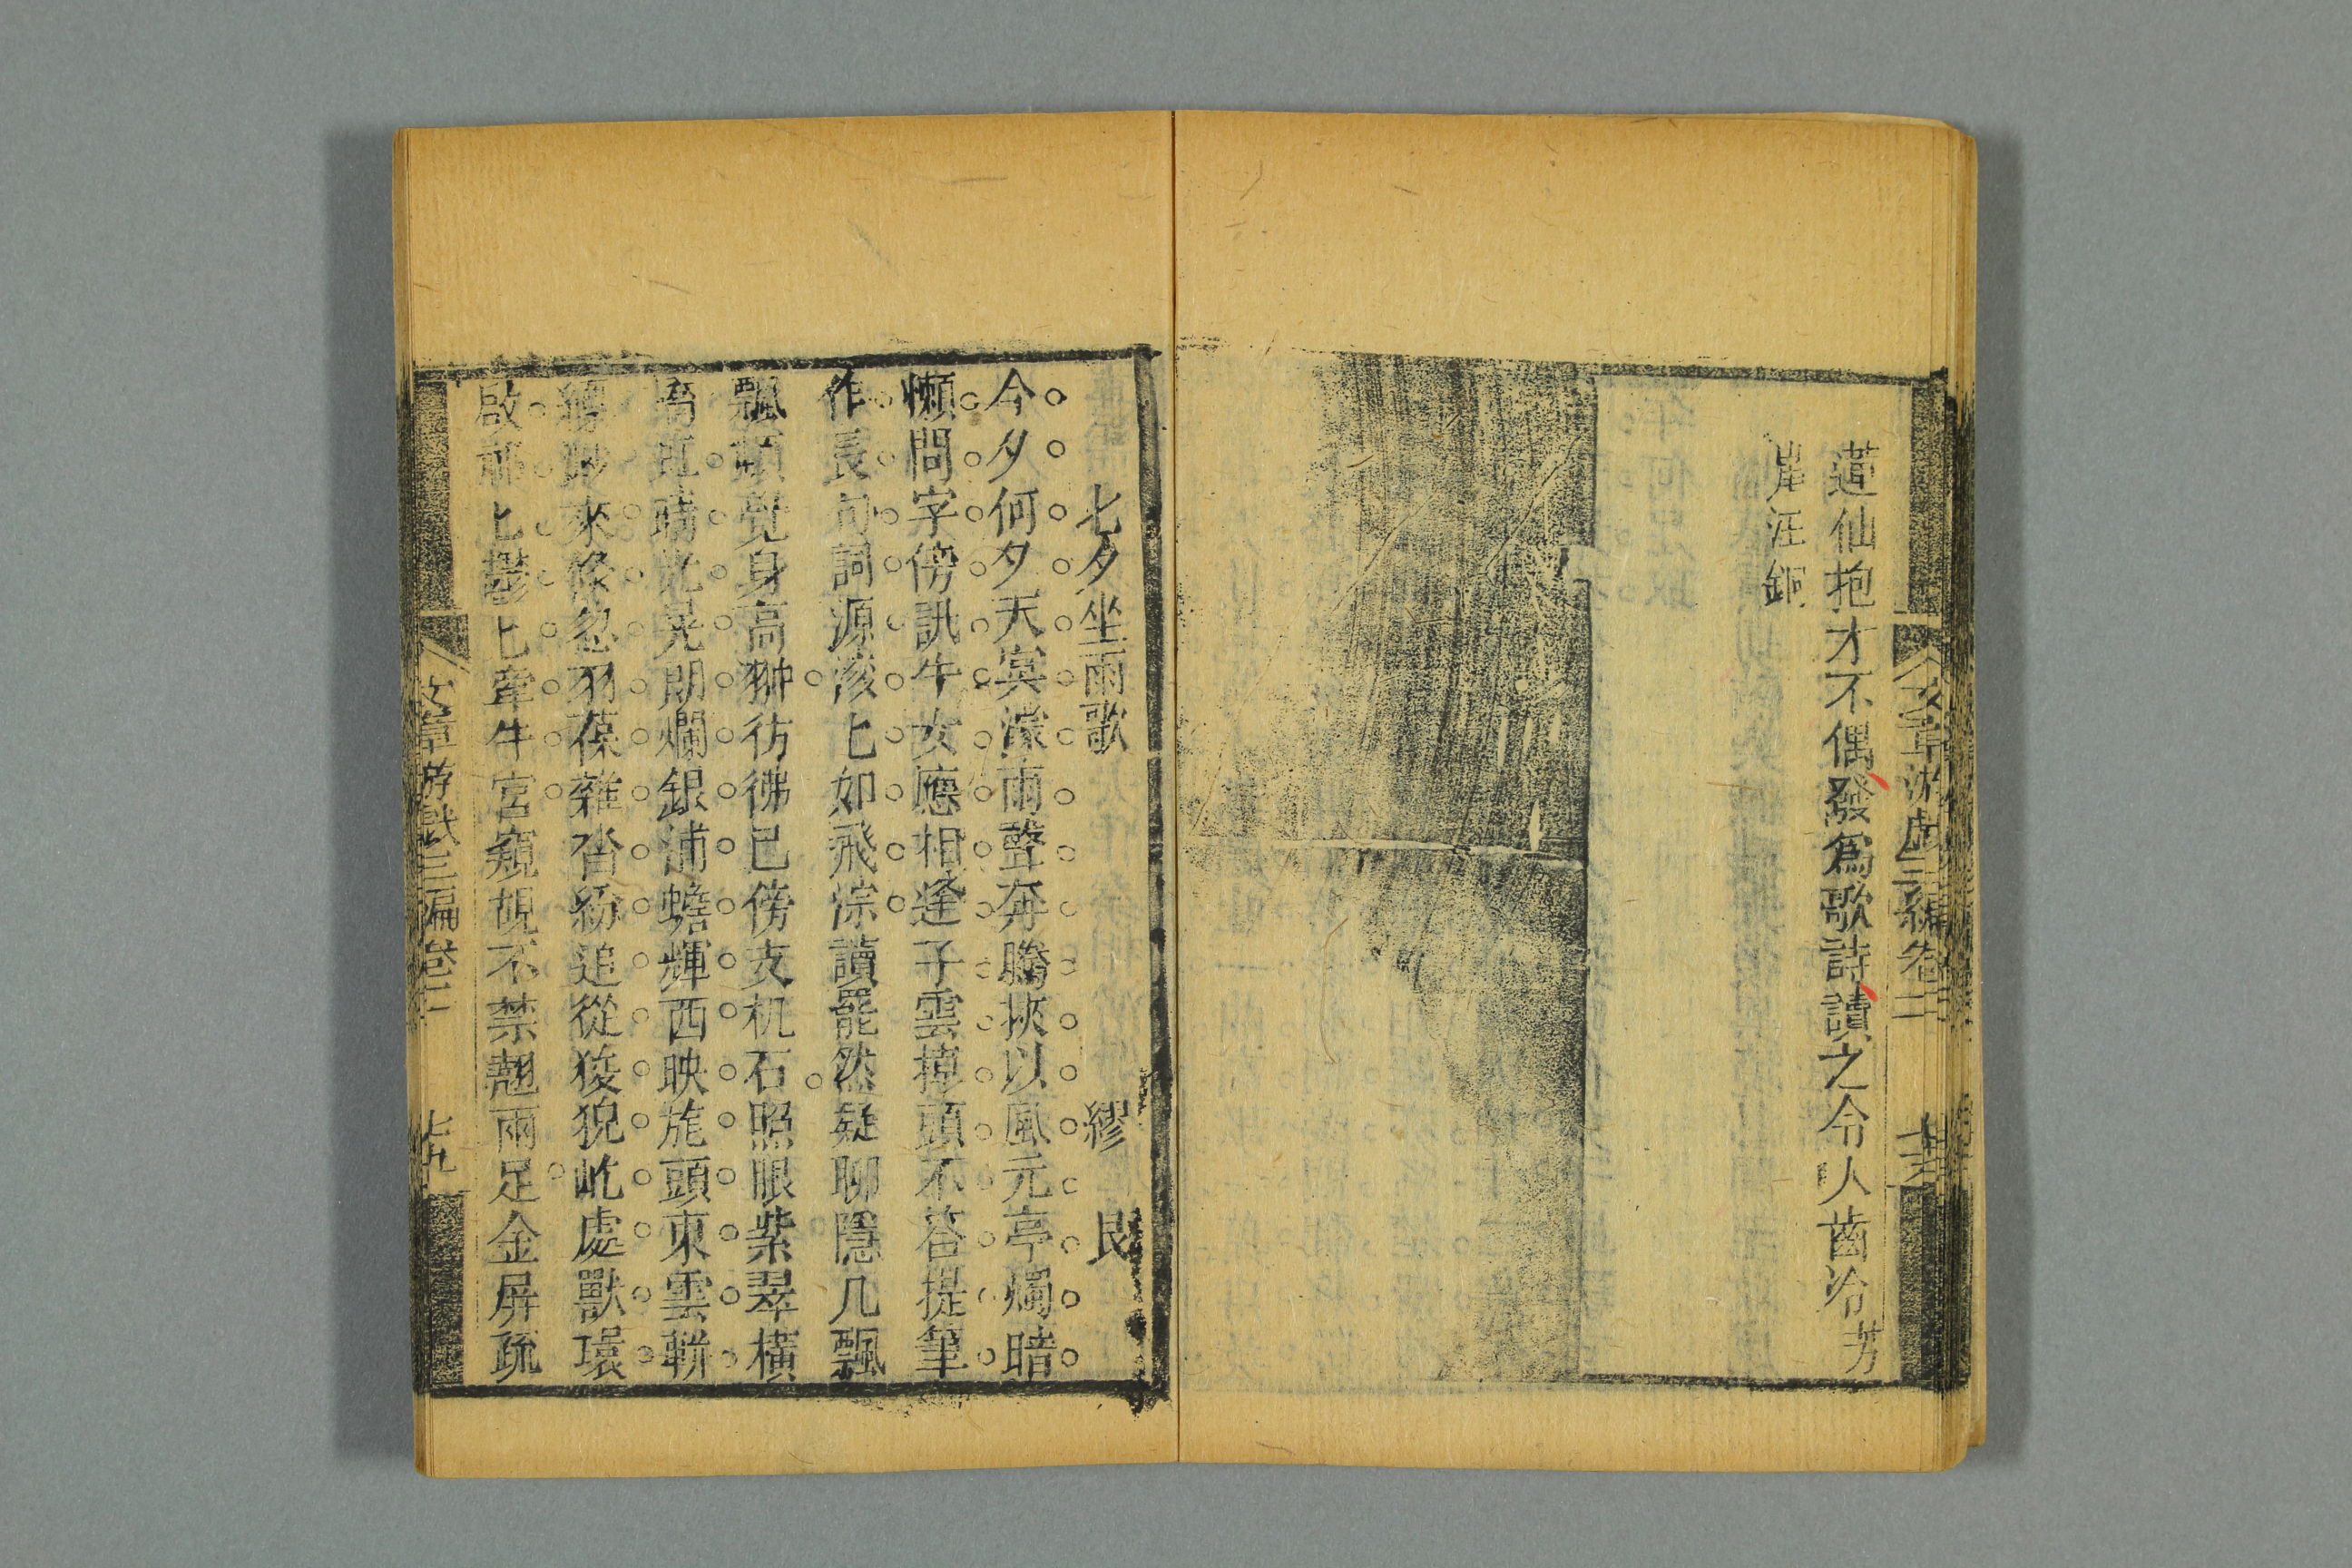 蓮仙抱才不偶發爲歌詩讀之令人齒冷芳
岸汪銅
文章游戲三編卷二
七夕坐雨歌 繆艮
今夕何夕天寞濛雨聲奔騰挾以風元亭燭暗
懶問字傍訊牛女應相逢子雲掉頭不答提筆
作長句詞源滾匕如飛淙讀罷然疑聊隱几飄
飄頓覺身高翀彷彿已傍支机石照眼紫翠橫
晴光晃朗爛銀浦蟾輝西映旄頭東雲輧
縹緲來倏忽羽葆雜沓紛追從狻猊屹處獸環
啟 匕鬱匕牽牛宮窺覘不禁翹兩足金屏疏
文章游戲三編卷二
七九